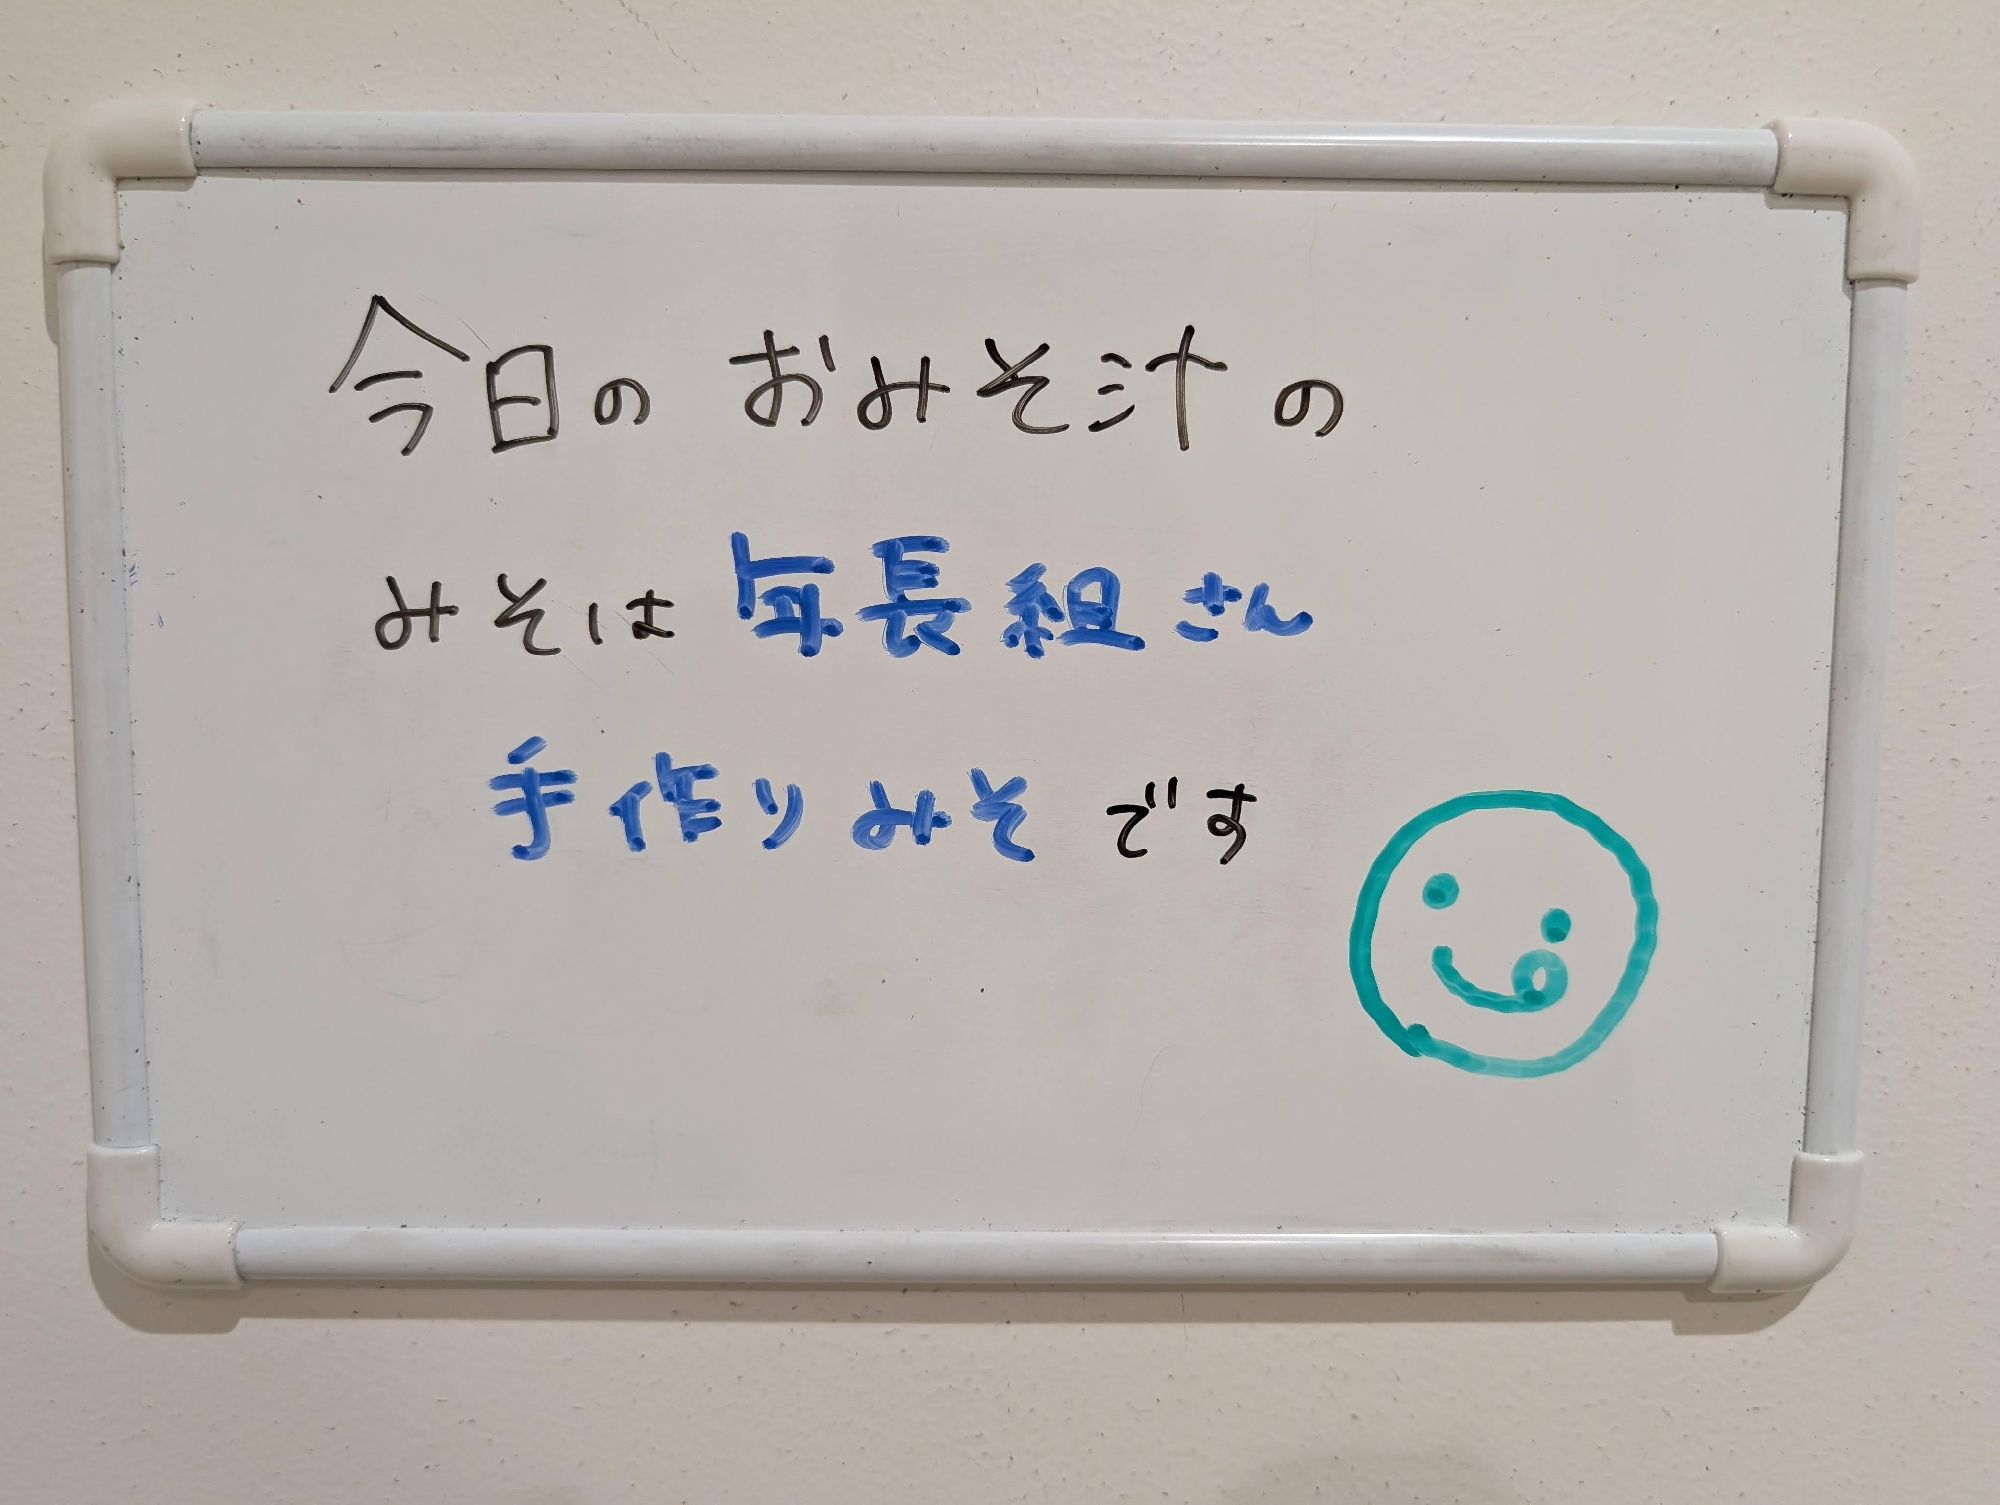 今日の おみそ汁の
みそは 年長組さん
手作りみそです